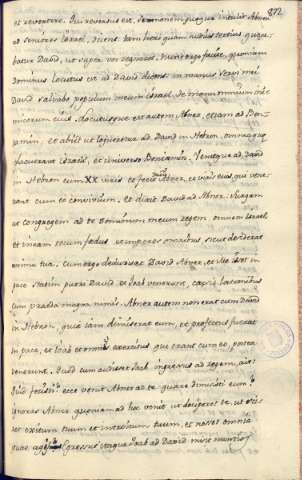 272
et revertere. Qui reversus est. Sermonem quoque intulit Abner
ad seniores Israel, dicens: tam heri quam nudius tertius quae-
batis David, ut super vos regnaret. Nunc ergo facite, quoniam
dominus locutus est ad David dicens: in manu servi mei
David salvabo populum meum Israel, de manu omnium ini-
micorum eius. Locutus est autem Abner, etiam ad Ben-
jamin, et abiit ut loqueretur ad David in Hebron, omnia quae
placuerant Israeli, et universo Beniamin. Venitque ad David
in Hebron cum XX viris et fecit Abner, et viris eius, qui vene-
rant cum eo convivium. et dixit David ad Abner. Surgam
ut congregem ad te dominum meum regem omnem Israel
et ineam tecum foedus et imperes omnibus sicut desiderat
anima tua. Cum ergo deduxisset David Abner, et ille isset in
pace statim pueri David et Joab venerunt, caesis latronibus
cum praeda magna nimis. Abner autem non erat cum David
in Hebron, quia iam dimiserat eum, et profectus fuerat
in pace, et Joab et omnis exercitus qui erant cum eo, postea
venerunt. Quod cum audisset Joab ingressus ad regem, ait:
Quid fecisti? ecce venit Abner ad te quare dimisisti eum?
ignoras Abner quoniam ad hoc venit ut deciperet te, ut sci-
ret exitum tuum et introitum tuum, et nosset omnia
quae agis. Egressus itaque Joab ad David misit nuntios